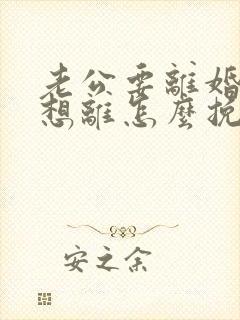 老公要離婚
想離怎麼挽
安之余